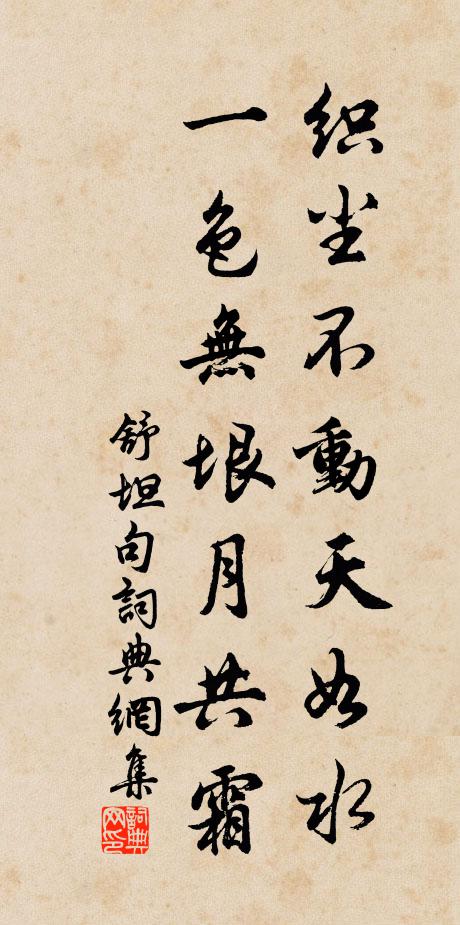 织尘不動天如水
一色無垠月共霜
舒坦句詞典網集
詞典
网印